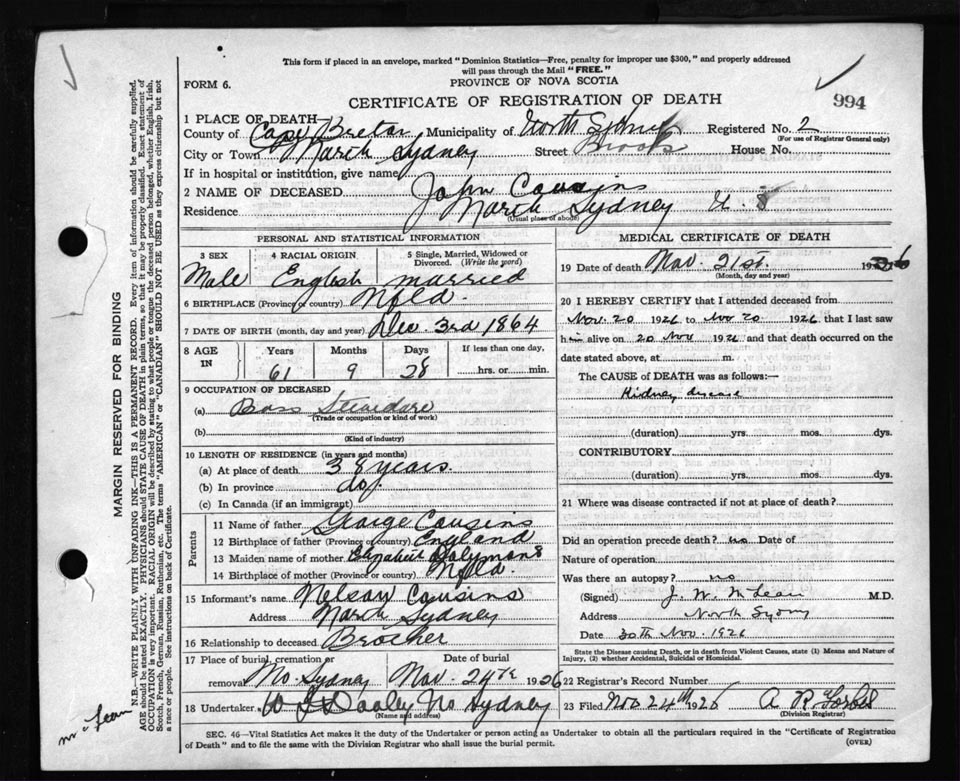 This form if placed in an envelope, marked "Dominion Statistics—Free, penalty for improper use $300," and properly addressed
will pass through the Mail "FREE."
FORM 6.
PROVINCE OF NOVA SCOTIA
CERTIFICATE OF REGISTRATION OF DEATH
994
1 PLACE OF DEATH—
County of Cape Breton Municipality of North Sydney Registered No. 2
(For use of Registrar General only)
City or Town North Sydney Street Brook House No.
If in hospital or institution, give name
2 NAME OF DECEASED John Cousins
Residence North Sydney
(Usual place of abode)
PERSONAL AND STATISTICAL INFORMATION
3 SEX 4 RACIAL ORIGIN 5 Single, Married, Widowed or Divorced. (Write the word)
Male English married
6 BIRTHPLACE (Province or country) Nfld.
7 DATE OF BIRTH (month, day and year) Dec. 3rd 1864
8 AGE IN Years Months Days If less than one day,
61 9 28 hrs. or min.
9 OCCUPATION OF DECEASED
(a) Boss Stevedore
(Trade or occupation or kind of work)
(b)
(Kind of industry)
10 LENGTH OF RESIDENCE (in years and months)
(a) At place of death 38 years.
(b) In province do.
(c) In Canada (if an immigrant)
Parents
11 Name of father George Cousins
12 Birthplace of father (Province or country) England
13 Maiden name of mother Elizabeth
14 Birthplace of mother (Province or country) Nfld.
15 Informant's name Nelson Cousins
Address North Sydney
16 Relationship to deceased Brother
17 Place of burial, cremation or removal No. Sydney Date of burial Nov. 24th 1926
18 Undertaker W J Dooley No Sydney
(Name and address)
MEDICAL CERTIFICATE OF DEATH
19 Date of death Nov. 21st. 1926
(Month, day and year)
20 I HEREBY CERTIFY that I attended deceased from
Nov. 20 1926 to Nov 20 1926 that I last saw
him alive on 20 Nov 1926 and that death occurred on the
date stated above, at m.
The CAUSE of DEATH was as follows:—
Kidney disease
(duration) yrs. mos. dys.
CONTRIBUTORY
(duration) yrs. mos. dys.
21 Where was disease contracted if not at place of death?
Did an operation precede death? no Date of
Nature of operation
Was there an autopsy? no
(Signed) J. W. McLean M.D.
Address North Sydney
Date 30th Nov. 1926
State the Disease causing Death, or in death from Violent Causes, state (1) Means and Nature of Injury, (2) whether Accidental, Suicidal or Homicidal.
22 Registrar's Record Number
23 Filed Nov 24th 1926 A R Forbes
(Division Registrar)
SEC. 46—Vital Statistics Act makes it the duty of the Undertaker or person acting as Undertaker to obtain all the particulars required in the "Certificate of Registration
of Death" and to file the same with the Division Registrar who shall issue the burial permit.
(OVER)
MARGIN RESERVED FOR BINDING
N.B.—WRITE PLAINLY WITH UNFADING INK—THIS IS A PERMANENT RECORD. Every item of information should be carefully supplied.
AGE should be stated EXACTLY. PHYSICIANS should STATE CAUSE OF DEATH in plain terms, so that it may be properly classified. Exact statement of
OCCUPATION is very important. RACIAL ORIGIN will be described by stating to what people or tongue the deceased person belonged, whether English, Irish,
Scotch, French, German, Russian, Ruthenian, etc. The terms "AMERICAN" or "CANADIAN" SHOULD NOT BE USED as they express citizenship but not
a race or people. See instructions on back of Certificate.
McLean